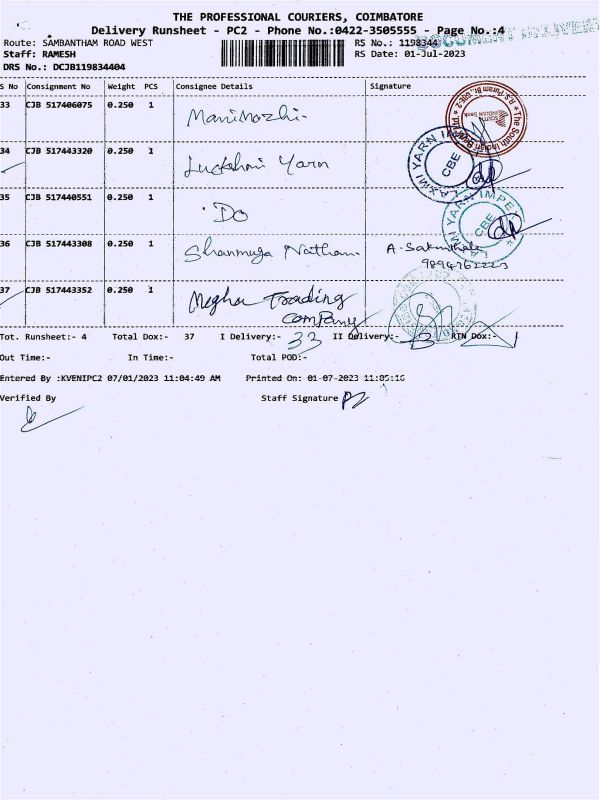 THE PROFESSIONAL COURIERS, COIMBATORE
Delivery Runsheet - PC2 - Phone No.:0422-3505555 - Page No.:4
Route: SAMBANTHAM ROAD WEST
RS No.: 1198344
DOCUMENT DELIVERE
Staff: RAMESH
RS Date: 01-Jul-2023
DRS No.: DCJB119834404
S No Consignment No Weight PCS Consignee Details Signature
33 CJB 517406075 0.250 1 Manimozhi
The South Indian Bank
34 CJB 517443320 0.250 1 Luckshmi Yarn
LAXMI YARN IMPE
CBE
35 CJB 517440551 0.250 1 Do
YARN IMPE
CBE
36 CJB 517443308 0.250 1 Shanmuga Nathan A. 
37 CJB 517443352 0.250 1 Megha Trading
Company
Tot. Runsheet:- 4 Total Dox:- 37 I Delivery:- 33 II Delivery:- 3 RTN Dox:- 1
Out Time:- In Time:- Total POD:-
Entered By :KVENIPC2 07/01/2023 11:04:49 AM Printed On: 01-07-2023 11:05:16
Verified By Staff Signature